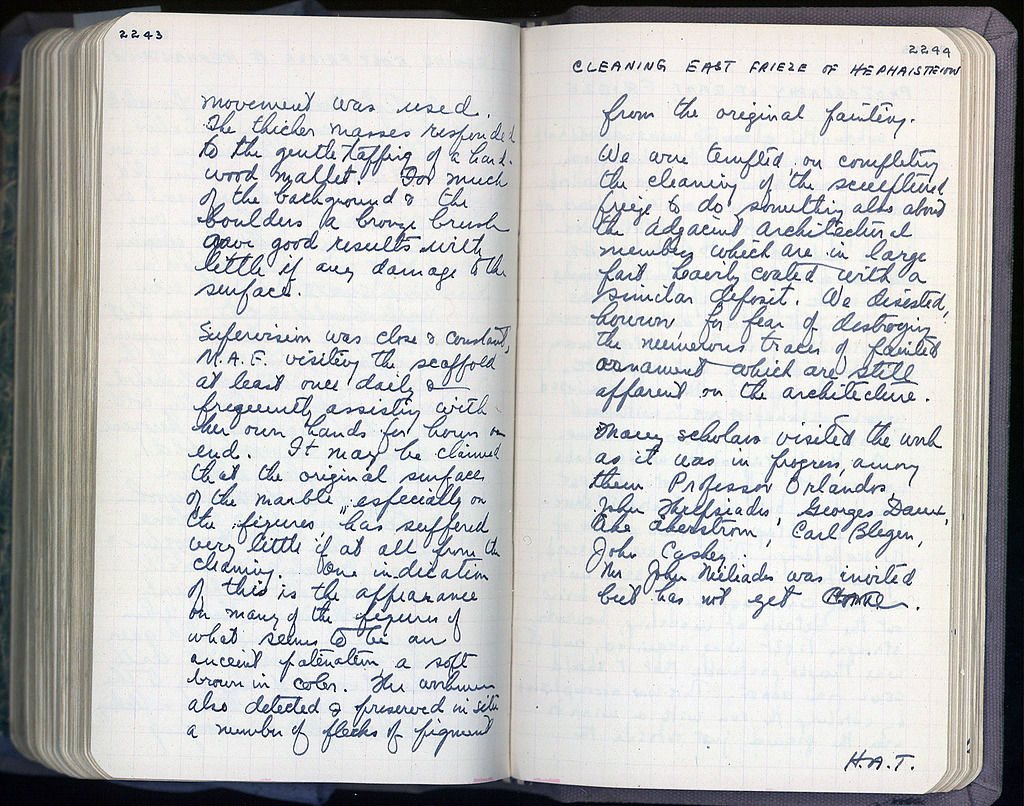 2243
movement was used.
The thicker masses responded
to the gentle tapping of a hard-
wood mallet. For much
of the background & the
boulders a bronze brush
gave good results with
little if any damage to the
surface.
Supervision was close & constant,
M.A.F. visiting the scaffold
at least once daily &
frequently assisting with
her own hands for hours on
end. It may be claimed
that the original surface
of the marble, especially on
the figures, has suffered
very little if at all from the
cleaning. One indication
of this is the appearance
on many of the figures of
what seems to be an
ancient patination, a soft
brown in color. The workmen
also detected & preserved in situ
a number of flecks of pigment
2244
CLEANING EAST FRIEZE OF HEPHAISTEION
from the original painting.
We were tempted on completing
the cleaning of the sculptured
frieze to do something also about
the adjacent architectural
members which are in large
part heavily coated with a
similar deposit. We desisted,
however, for fear of destroying
the numerous traces of painted
ornament which are still
apparent on the architecture.
Many scholars visited the work
as it was in progress, among
them Professor Orlandos,
John Threpsiades, Georges Daux,
Åke Åkerström, Carl Blegen,
John Caskey.
Mr. John Meliades was invited
but has not yet come.
H.A.T.